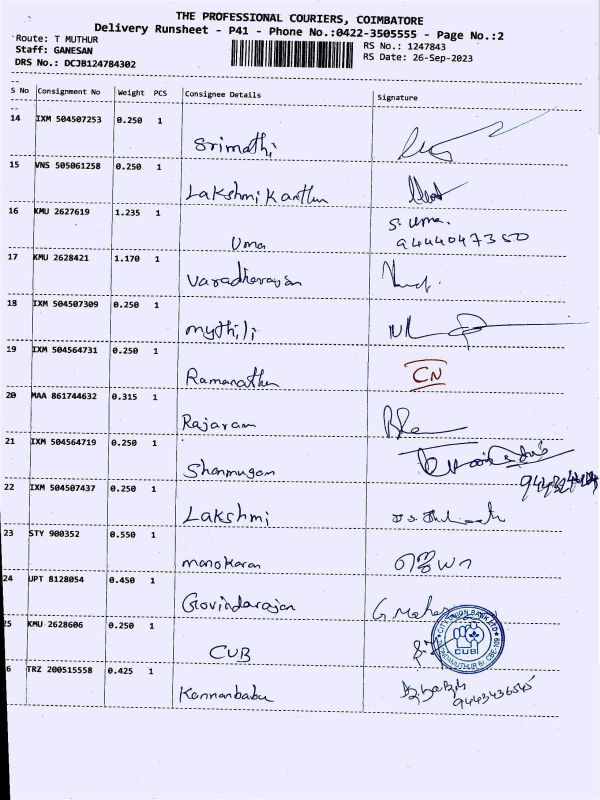 THE PROFESSIONAL COURIERS, COIMBATORE
Delivery Runsheet - P41 - Phone No.:0422-3505555 - Page No.:2
Route: T MUTHUR
RS No.: 1247843
Staff: GANESAN
RS Date: 26-Sep-2023
DRS No.: DCJB124784302
S No Consignment No Weight PCS Consignee Details Signature
14 IXM 504507253 0.250 1
Srimathi
15 VNS 505061258 0.250 1
Lakshmi Kanthan
16 KMU 2627619 1.235 1 S. Uma.
Uma 9444047350
17 KMU 2628421 1.170 1
Varadharajan
18 IXM 504507309 0.250 1
mythili
19 IXM 504564731 0.250 1
Ramanathan CN
20 MAA 861744632 0.315 1
Rajaram
21 IXM 504564719 0.250 1
Shanmugam
22 IXM 504507437 0.250 1
Lakshmi
23 STY 900352 0.550 1
manokaran
24 UPT 8128054 0.450 1
Govindarajan G Mohan
25 KMU 2628606 0.250 1
CUB
CITY UNION BANK LTD
CUB
6 TRZ 200515558 0.425 1
Kannanbabu
9443436545